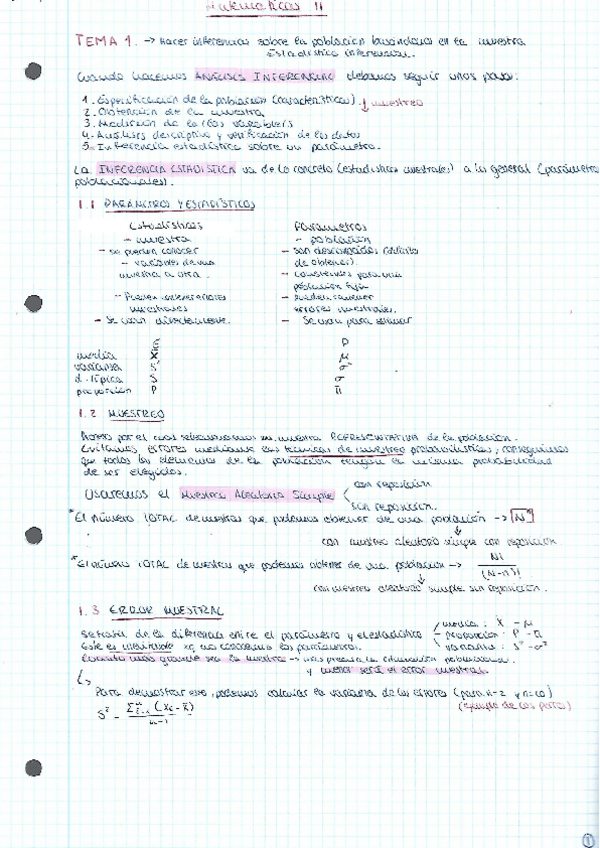 TEMA 1. → Hacer inferencias sobre la población basándonos en la muestra
Estadística inferencial.
Cuando hacemos ANÁLISIS INFERENCIAL debemos seguir unos pasos:
1. Especificación de la población (características) ↓ muestreo
2. Obtención de la muestra
3. Medición de la(s) variable/s
4. Análisis descriptivo y verificación de los datos
5. Inferencia estadística sobre un parámetro.
La INFERENCIA ESTADÍSTICA va de lo concreto (estadísticos muestrales) a lo general (parámetros
poblacionales).
1.1 PARÁMETROS Y ESTADÍSTICOS
Estadísticos Parámetros
- muestra - población
- se pueden conocer - son desconocidos
- variables de una de obtener).
muestra a otra. - constantes para una
población fija
errores muestrales.
- Se usan directamente. - Se usan para estimar
E P
media X̄ μ
varianza S² σ²
d. típica S σ
proporción P π
1.2 MUESTREO
por el cual seleccionamos una muestra REPRESENTATIVA de la población.
Evitamos errores mediante las técnicas de muestreo probabilísticas, conseguimos
que todos los elementos de la población tengan la misma probabilidad
de ser elegidos.
Usaremos el Muestreo Aleatorio Simple
con reposición
sin reposición.
* El número TOTAL de muestras que podemos obtener de una población → Nⁿ
con muestreo aleatorio simple con reposición
* El número TOTAL de muestras que podemos obtener de una población → N! / (N-n)!
con muestreo aleatorio simple sin reposición.
1.3 ERROR MUESTRAL
Se trata de la diferencia entre el parámetro y el estadístico
media: X̄ - μ
proporción: P - π
varianza: S² - σ²
Este es inevitable xq no conocemos los parámetros.
Cuanto más grande sea la muestra → más precisa la estimación poblacional
y menor será el error muestral.
Para demostrar eso, podemos calcular la varianza de los errores (para n=2 y n=10)
(ejemplo de los)
1